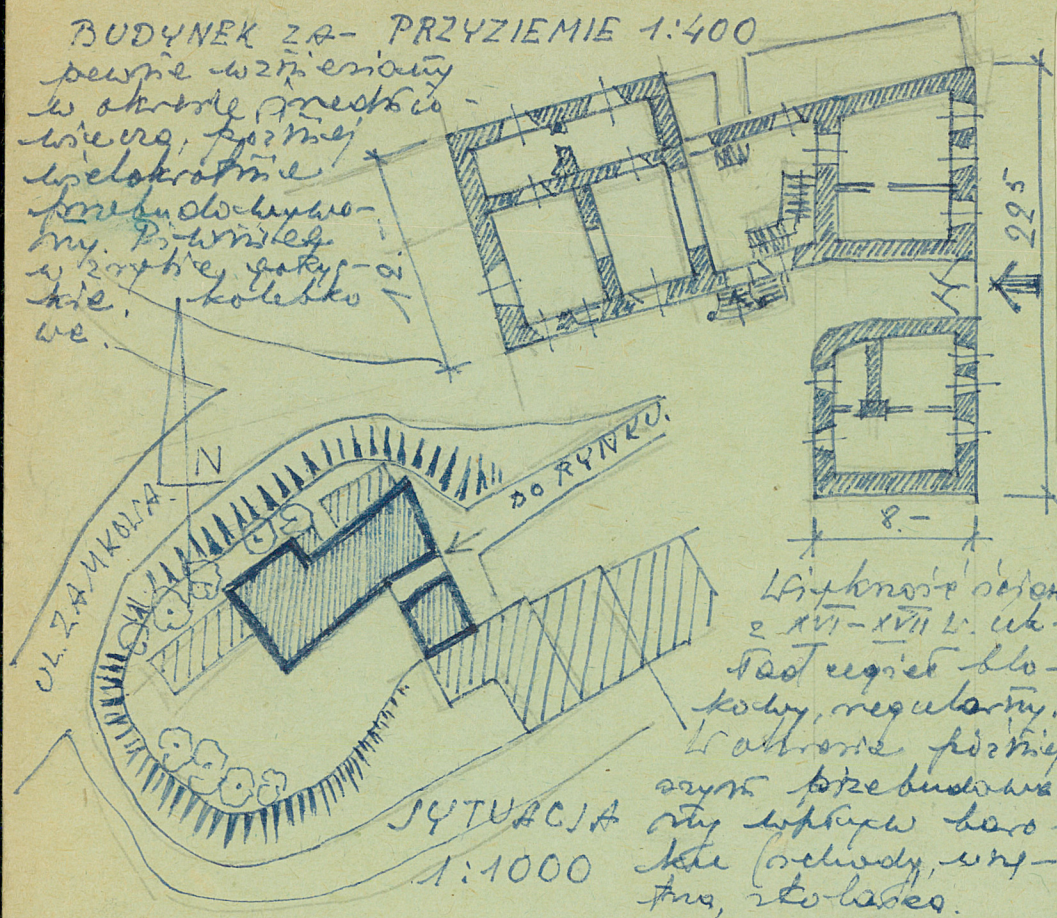 BUDYNEK ZA- PRZYZIEMIE 1:400
pewnie wzniesiony
w okresie średnio-
wiecza, później
wielokrotnie
przebudowywa-
ny. Piwnice
w zrębie gotyc-
kie, kolebko
we.
12.-
225
8.-
N
UL. ZAMKOWA.
DO RYNKU.
SYTUACJA
1:1000
Większość ścian
z XVI-XVII w. uk-
ład cegieł blo-
kowy, regularny.
W okresie później
szym przebudowa
ny wpływ baro-
ku (schody, wnę-
trza,